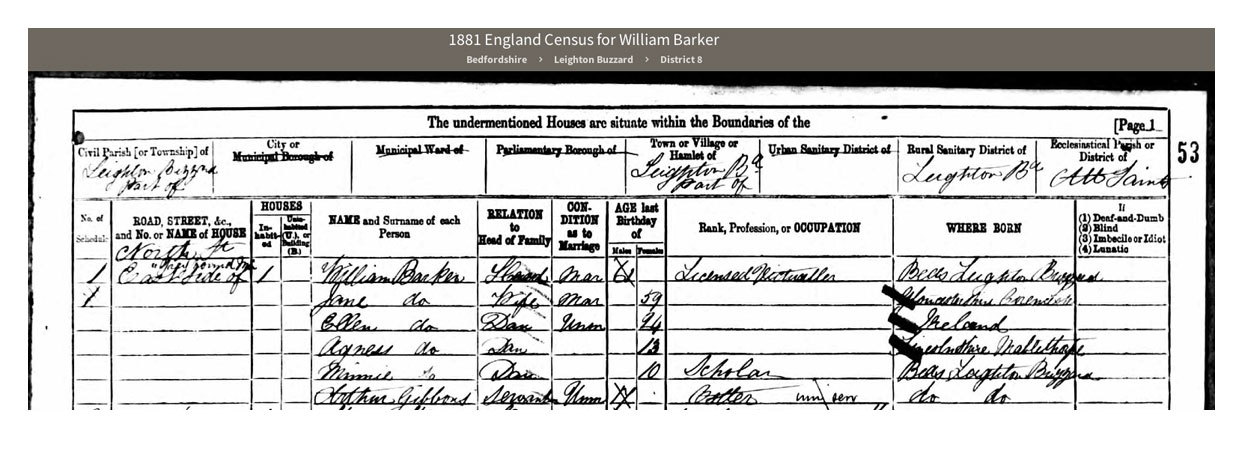 1881 England Census for William Barker
Bedfordshire › Leighton Buzzard › District 8
The undermentioned Houses are situate within the Boundaries of the [Page 1
Civil Parish [or Township] of City or Municipal Borough of Municipal Ward of Parliamentary Borough of Town or Village or Hamlet of Urban Sanitary District of Rural Sanitary District of Ecclesiastical Parish or District of 53
Leighton Buzzard part of Leighton Bd part of Leighton Bd All Saints
No. of Schedule ROAD, STREET, &c., and No. or NAME of HOUSE HOUSES In-habit-ed Unin-habited (U.), or Building (B.) NAME and Surname of each Person RELATION to Head of Family CON-DITION as to Marriage AGE last Birthday of Males Females Rank, Profession, or OCCUPATION WHERE BORN If (1) Deaf-and-Dumb (2) Blind (3) Imbecile or Idiot (4) Lunatic
North St
1 East Side of 1 William Barker Head Mar Licensed Victualler Beds Leighton Buzzard
Jane do Wife Mar 59
Ellen do Dau Unm 24 Ireland
Agness do Dau 13 Lincolnshire Mablethorpe
Minnie do Dau 10 Scholar Beds Leighton Buzzard
Arthur Gibbons Servant Unm Ostler do do